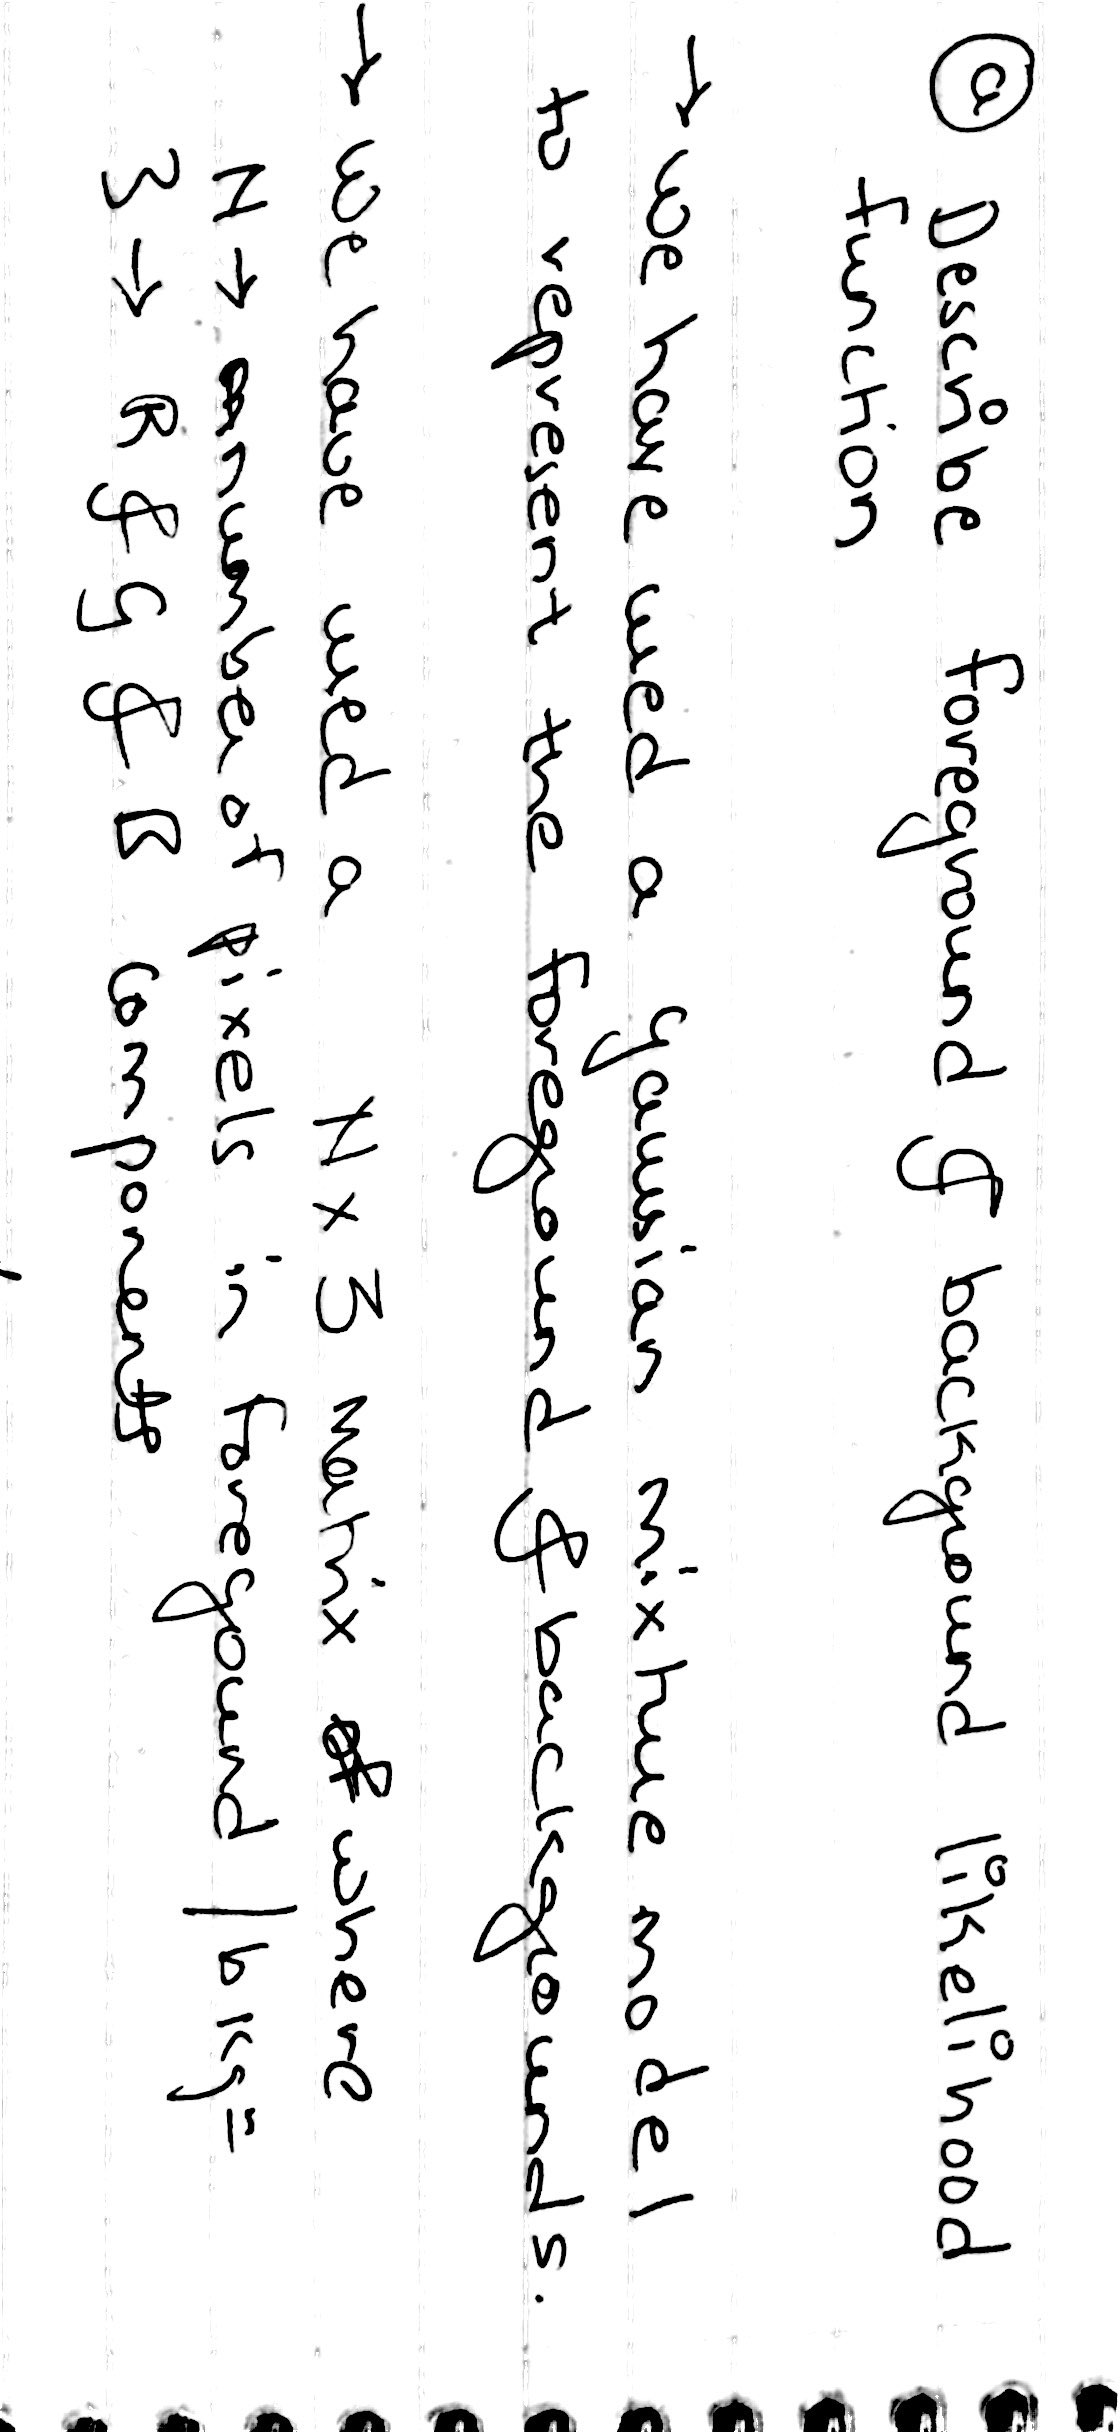 ⓐ Describe foreground & background likelihood
function
→ we have used a gaussian mixture model
to represent the foreground & backgrounds.
→ we have used a N x 3 matrix where
N → number of pixels in foreground / bkg =
3 → R & G & B components